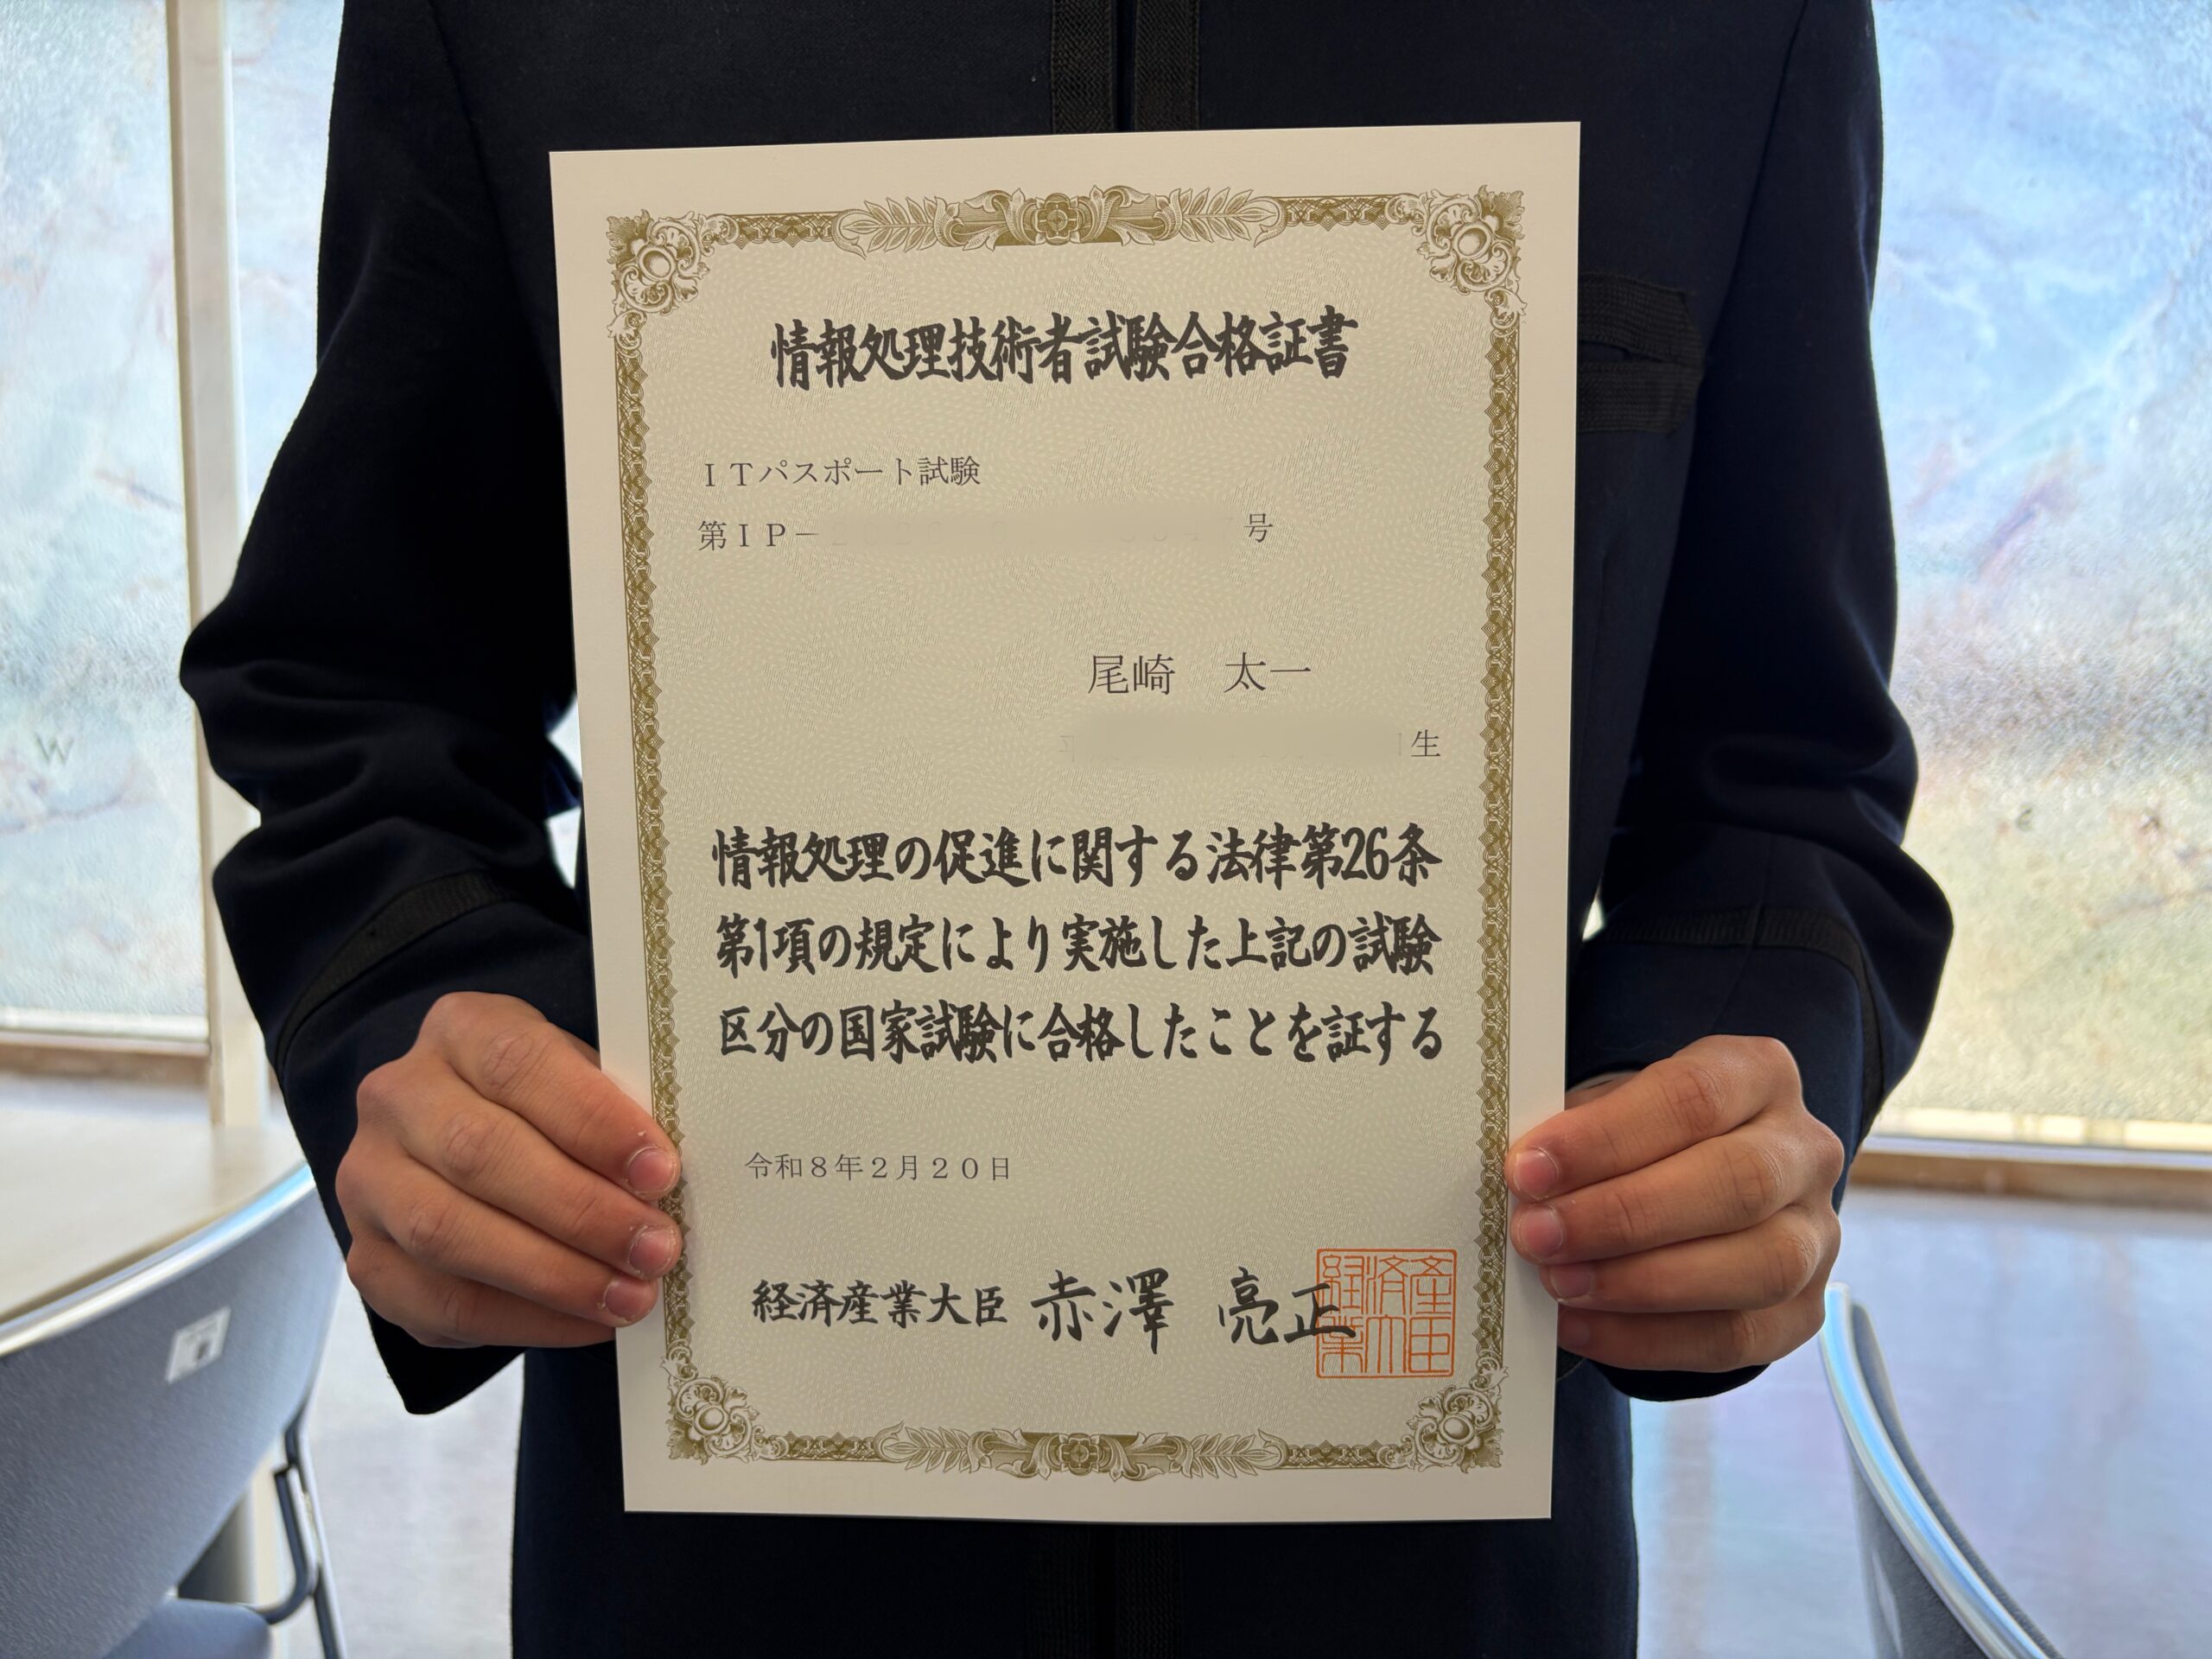 情報処理技術者試験合格証書
ITパスポート試験
第IP－ 号
尾崎　太一
生
情報処理の促進に関する法律第26条
第1項の規定により実施した上記の試験
区分の国家試験に合格したことを証する
令和8年2月20日
経済産業大臣 赤澤　亮正